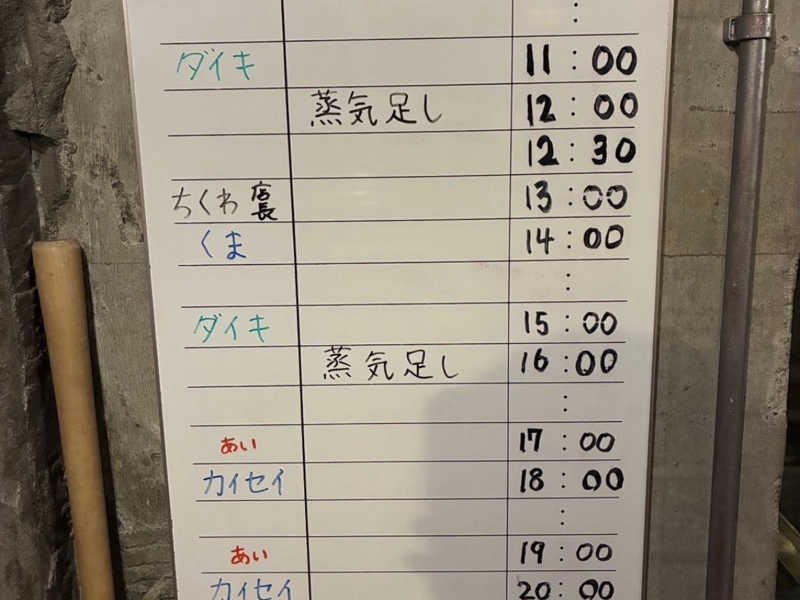 :
ダイキ 11:00
蒸気足し 12:00
12:30
ちくわ 店長 13:00
くま 14:00
:
ダイキ 15:00
蒸気足し 16:00
:
あい 17:00
カイセイ 18:00
:
あい 19:00
カイセイ 20:00